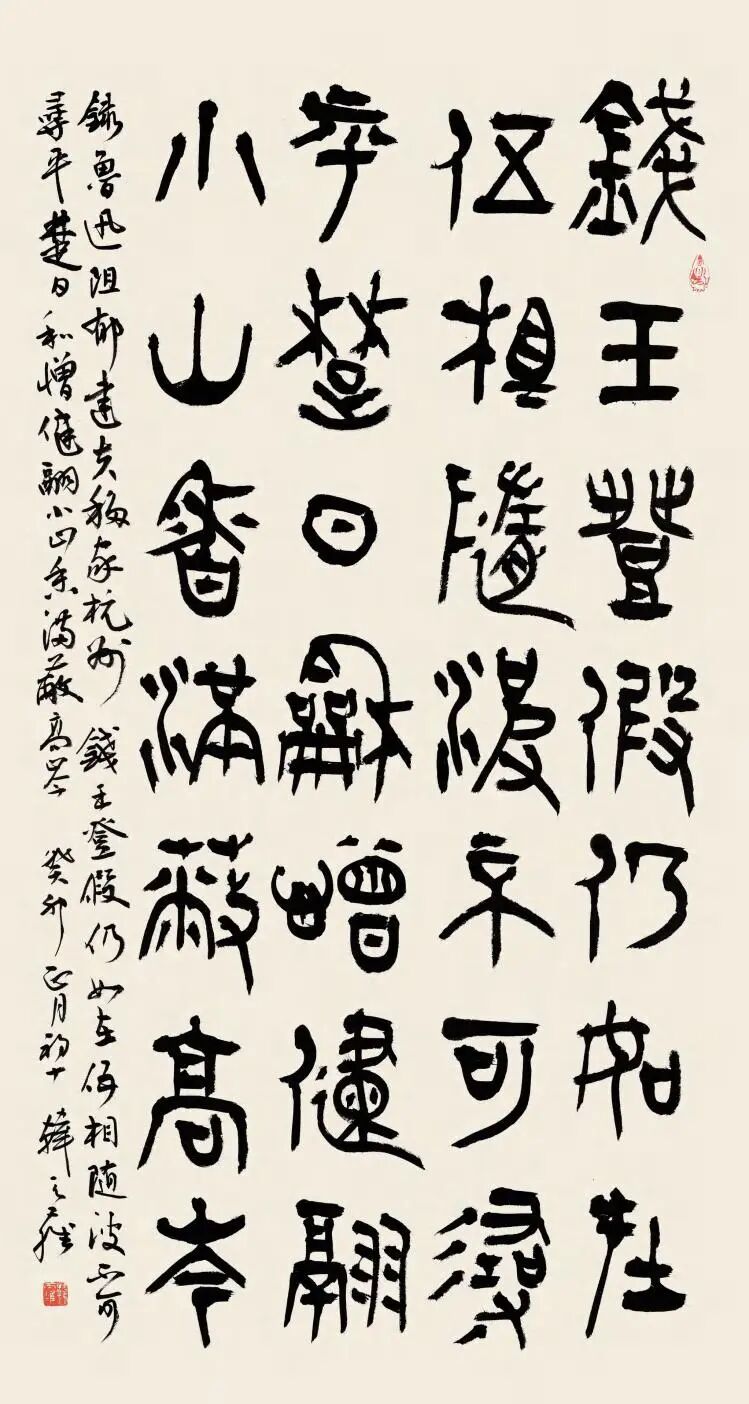 錢王登假仍如在
伍相隨波不可尋
平楚日和憎健翮
小山香滿蔽高岑
錄魯迅阻郁達夫移家杭州 錢王登假仍如在伍相随波不可
尋平楚日和憎健翮小山香滿蔽高岑 癸卯正月初十 韓天雍